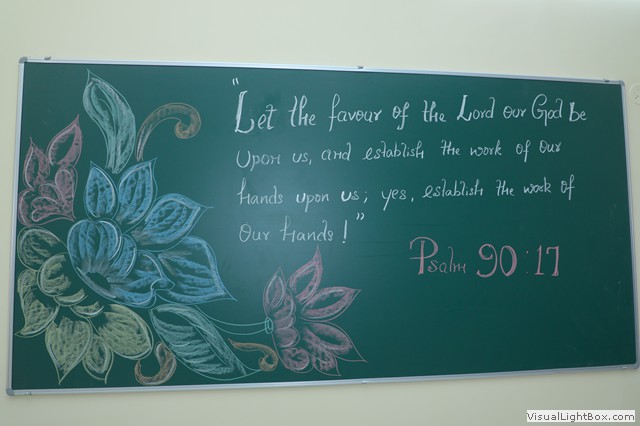 "Let the favour of the Lord our God be
upon us, and establish the work of our
hands upon us; yes, establish the work of
our hands!"
Psalm 90:17
VisualLightBox.com